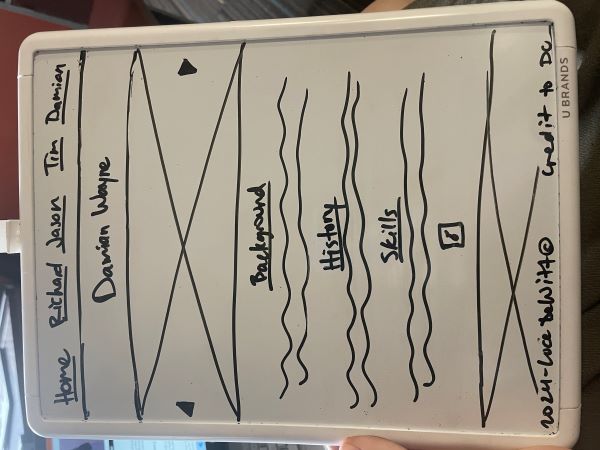 Home Richard Jason Tim Damian
Damian Wayne
Background
History
Skills
2024-Luce DeWitt©
Credit to DC
U BRANDS